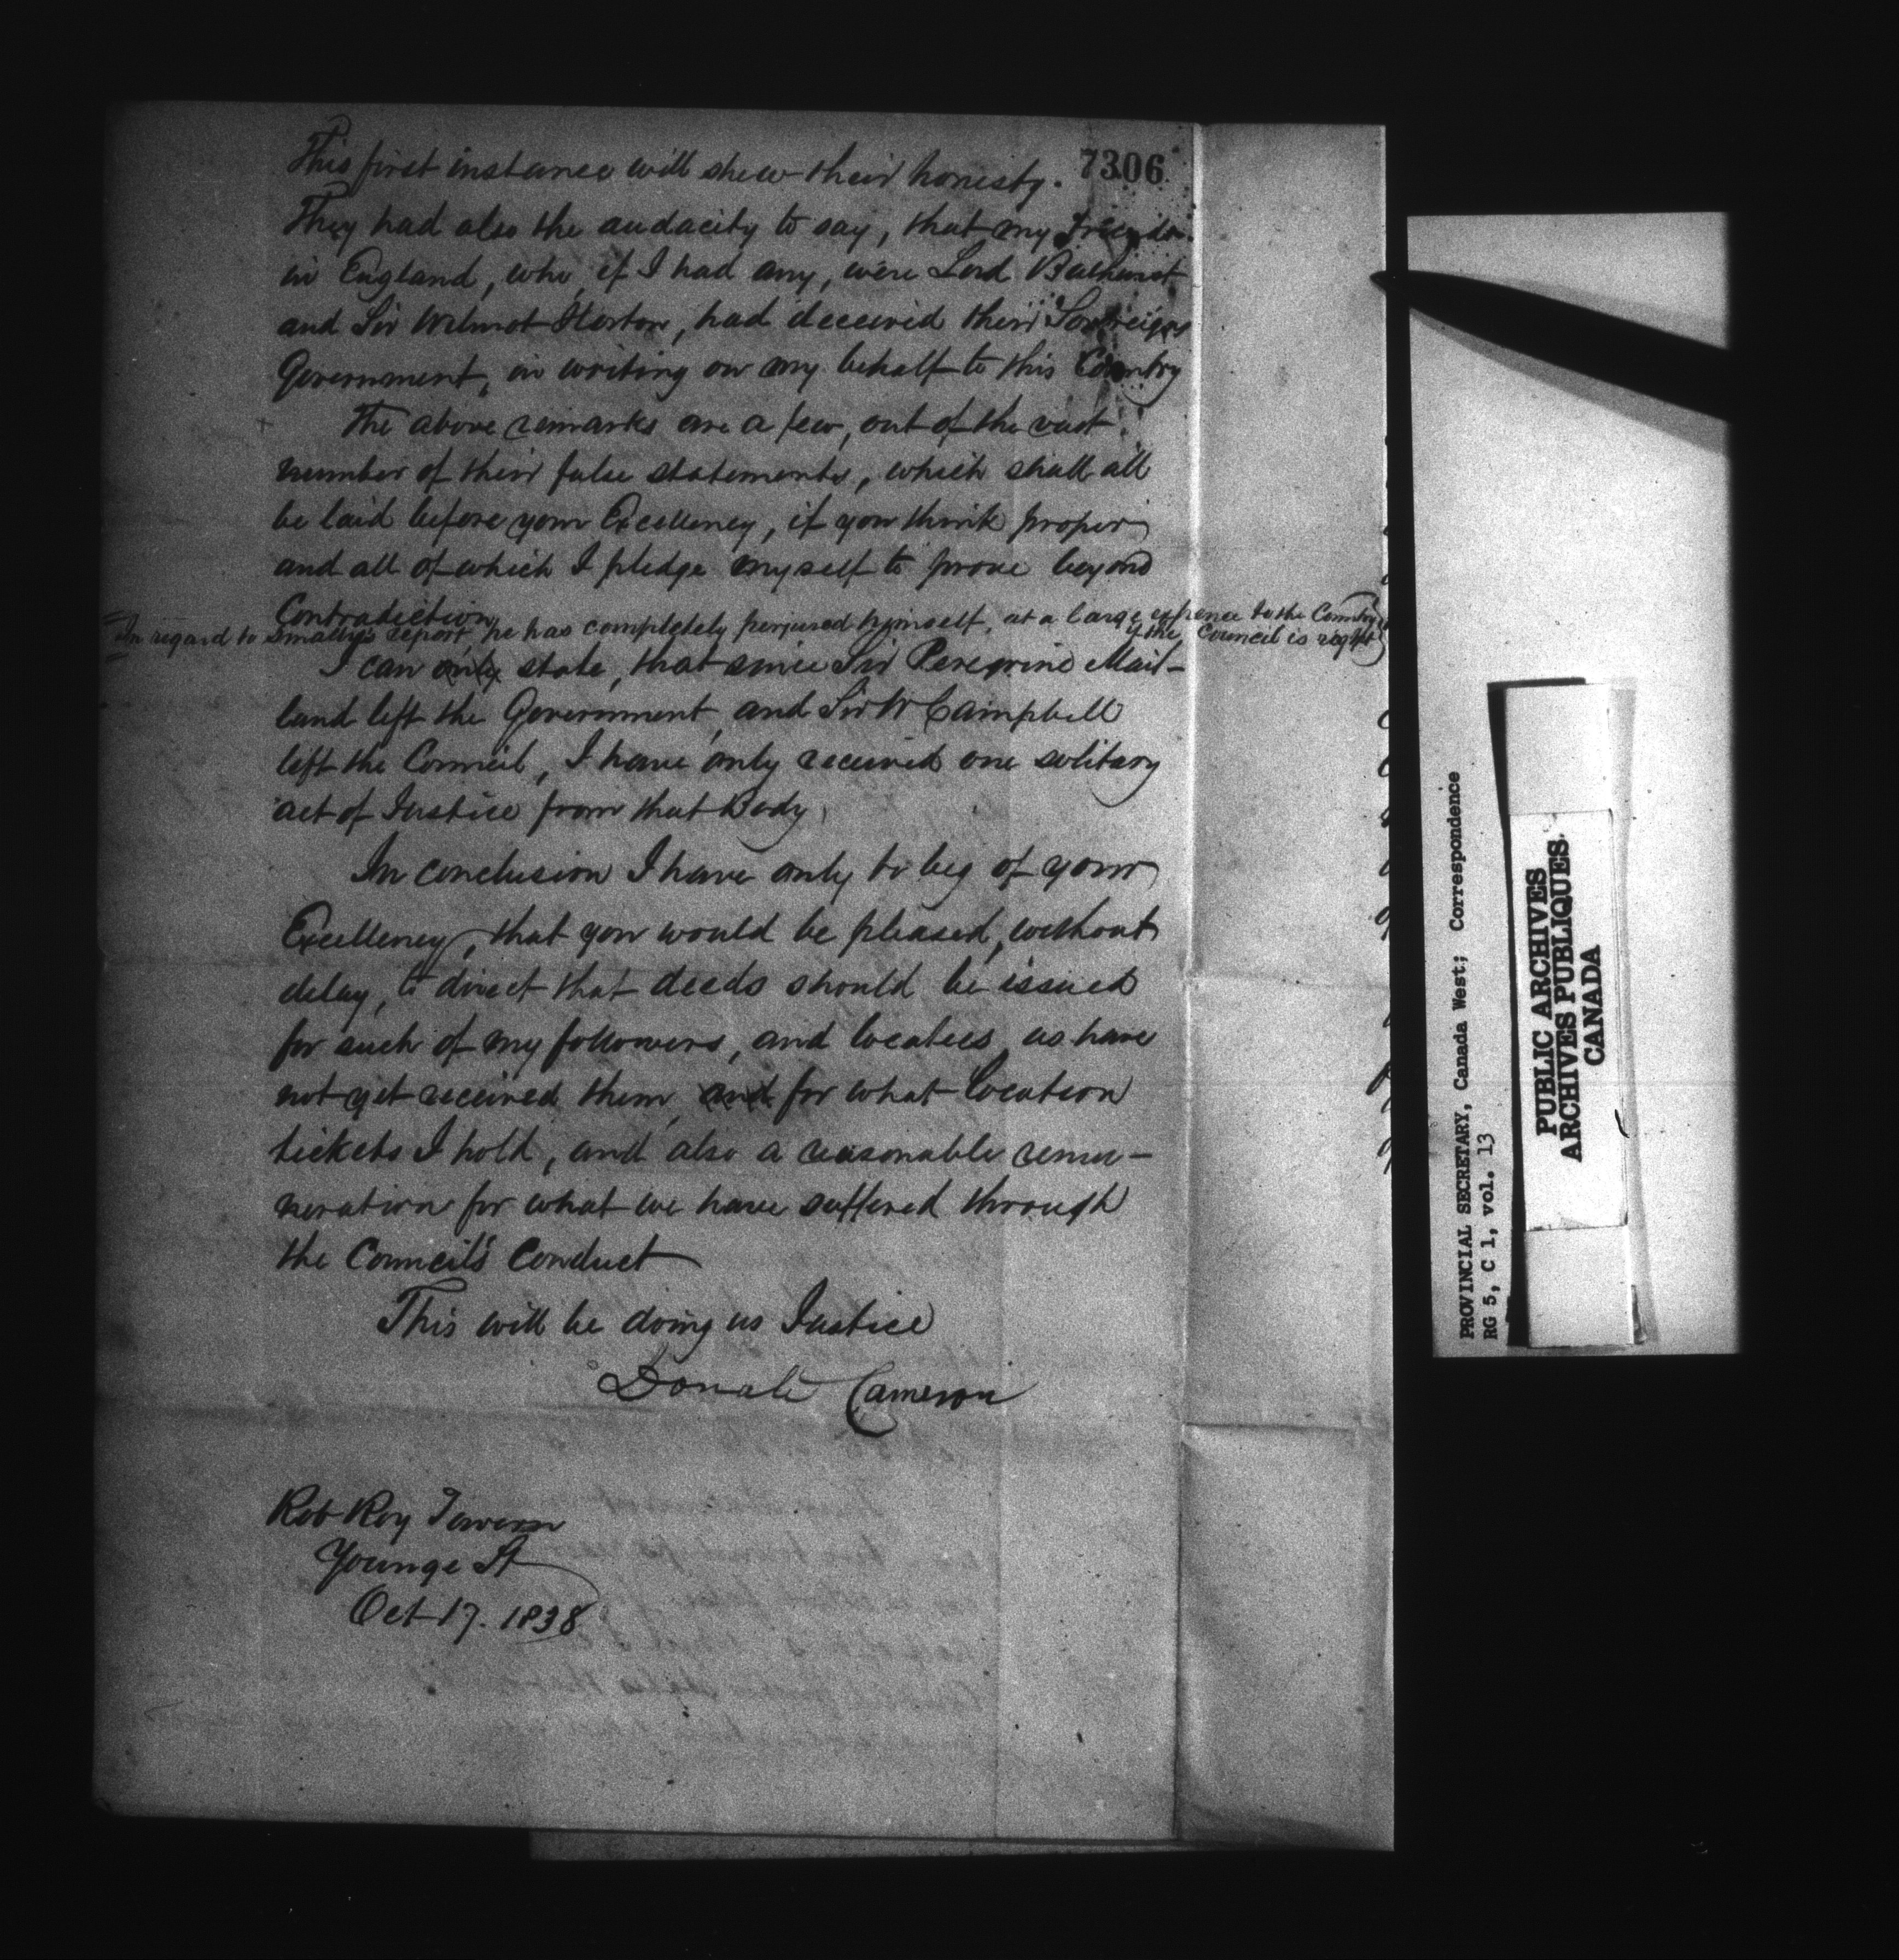 7306
This first instance will shew their honesty.
They had also the audacity to say, that my Friends
in England, who, if I had any, were Lord Bathurst
and Sir Wilmot Horton, had deceived their Sovreigns
Government, in writing on my behalf to this Country
The above remarks are a few, out of the vast
number of their false statements, which shall all
be laid before your Excellency, if you think proper
and all of which I pledge myself to prove beyond
Contradiction
In regard to Smally's report, he has completely perjured himself, at a large expence to the Country
if the Council is right
I can only state, that since Sir Peregrine Mait-
land left the Government, and Sir W Campbell
left the Council, I have only received one solitary
act of Justice from that Body,
In conclusion I have only to beg of your
Excellency, that you would be pleased, without
delay, to direct that deeds should be issued
for such of my followers, and locatees, as have
not yet received them, and for what location
tickets I hold, and also a reasonable remu-
neration for what we have suffered through
the Council's Conduct
This will be doing us Justice
Donald Cameron
Rob Roy Tavern
Younge St
Oct 17. 1838
PROVINCIAL SECRETARY, Canada West; Correspondence
RG 5, C 1, vol. 13
PUBLIC ARCHIVES
ARCHIVES PUBLIQUES
CANADA